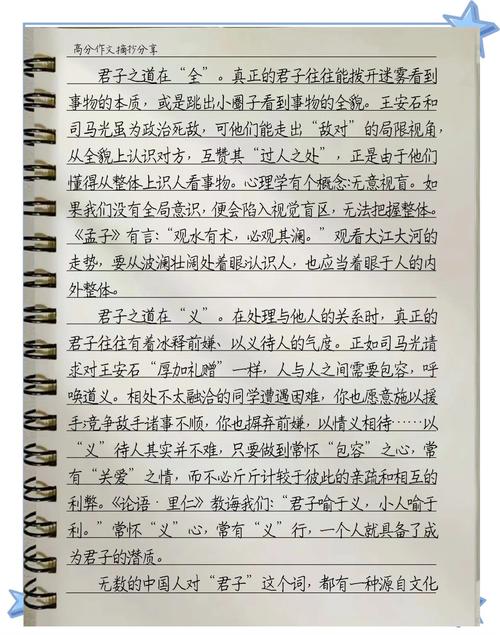 高分作文摘抄分享
君子之道在“全”。真正的君子往往能拨开迷雾看到
事物的本质，或是跳出小圈子看到事物的全貌。王安石和
司马光虽为政治死敌，可他们能走出“敌对”的局限视角，
从全貌上认识对方，互赞其“过人之处”，正是由于他们
懂得从整体上识人看事物。心理学有个概念:无意视盲。如
果我们没有全局意识，便会陷入视觉盲区，无法把握整体。
《孟子》有言：“观水有术，必观其澜。”观看大江大河的
走势，要从波澜壮阔处着眼;认识人，也应当着眼于人的内
外整体。
君子之道在“义”。在处理与他人的关系时，真正的
君子往往有着冰释前嫌、以义待人的气度。正如司马光请
求对王安石“厚加礼赠”一样，人与人之间需要包容，呼
唤道义。相处不太融洽的同学遭遇困难，你也愿意施以援
手;竞争敌手诸事不顺，你也摒弃前嫌，以情义相待……以
“义”待人其实并不难，只要做到常怀“包容”之心，常
有“关爱”之情，而不必斤斤计较于彼此的亲疏和相互的
利弊。《论语·里仁》教诲我们：“君子喻于义，小人喻于
利。”常怀“义”心，常有“义”行，一个人就具备了成
为君子的潜质。
无数的中国人对“君子”这个词，都有一种源自文化